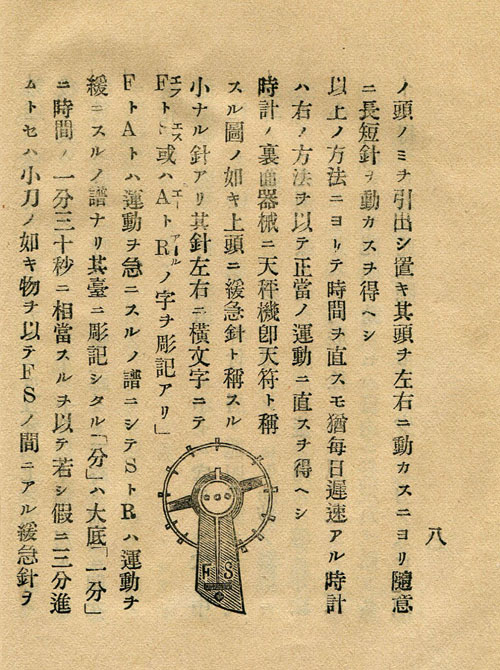 八
ノ頭ノミヲ引出シ置キ其頭ヲ左右ニ動カスニヨリ隨意
ニ長短針ヲ動カスヲ得ヘシ
以上ノ方法ニヨリテ時間ヲ直スモ猶毎日遲速アル時計
ハ右ノ方法ヲ以テ正當ノ運動ニ直スヲ得ヘシ
時計ノ裏面器械ニ天秤機卽天符ト稱
スル圖ノ如キ上頭ニ緩急針ト稱スル
小ナル針アリ其針左右ニ橫文字ニテ
FエフトSエス或ハAエートRアールノ字ヲ彫記アリ」
FトAトハ運動ヲ急ニスルノ譜ニシテSトRハ運動ヲ
緩ニスルノ譜ナリ其臺ニ彫記シタル「分」ハ大底「一分」
ニ時間ノ一分三十秒ニ相當スルヲ以テ若シ假ニ三分進
ムトセハ小刀ノ如キ物ヲ以テFSノ間ニアル緩急針ヲ
F S